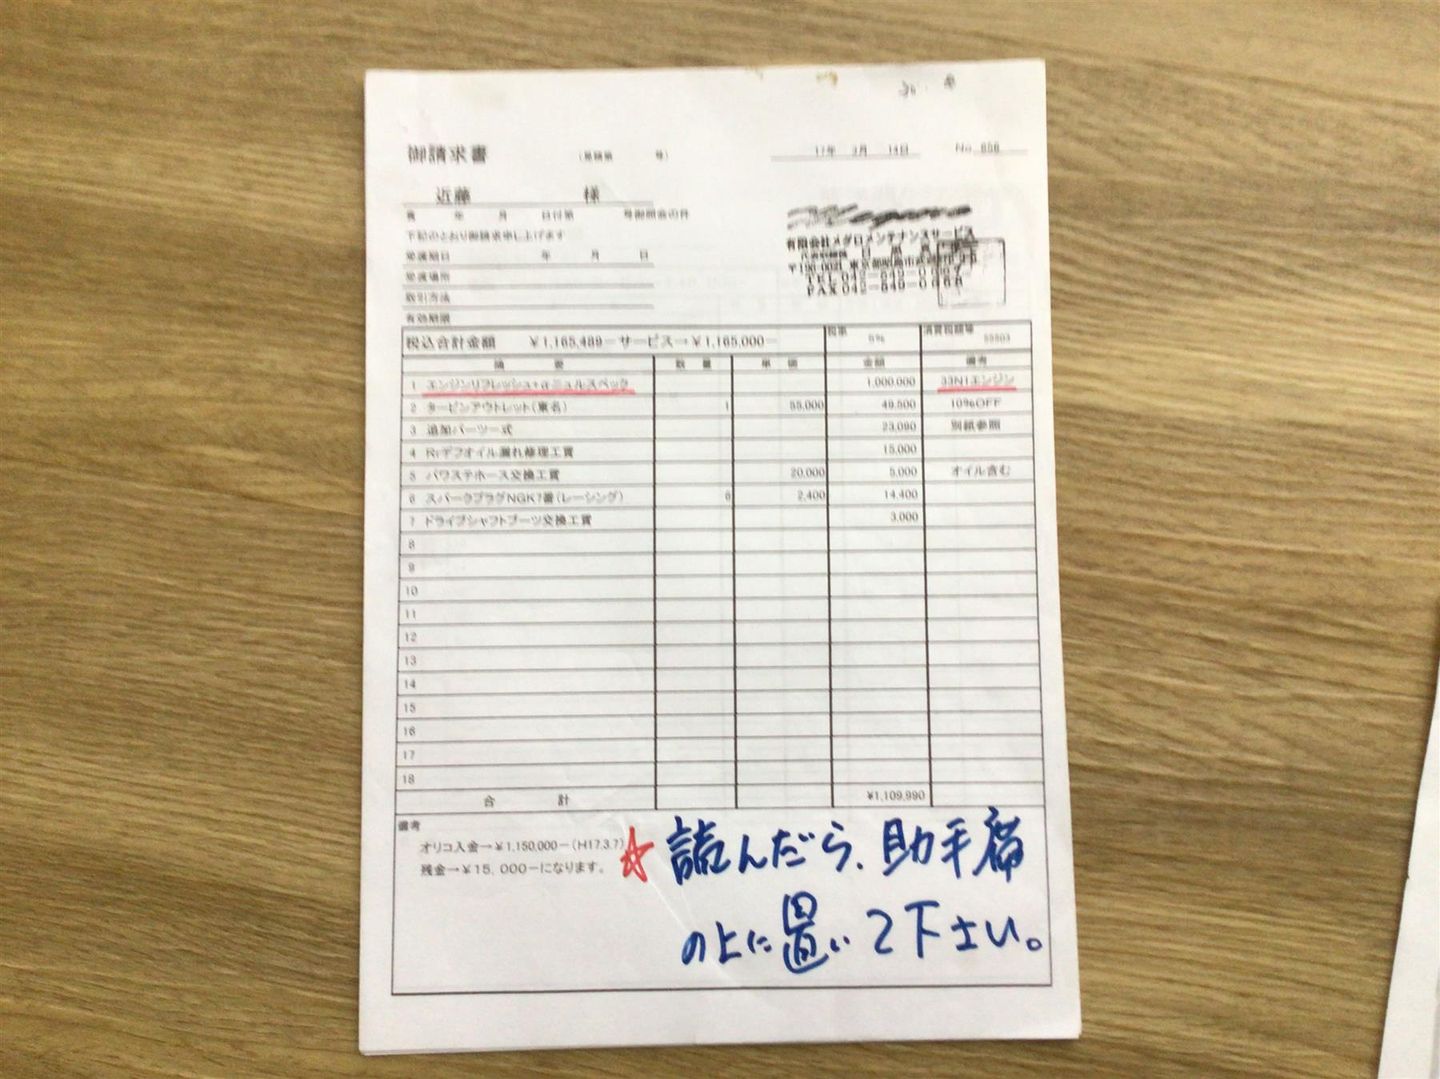 御請求書
17年 3月 14日 No. 656
近藤 様
年 月 日付第
下記のとおり御請求申し上げます
受渡期日 年 月 日
受渡場所
取引方法
有効期限
有限会社メグロメンテナンスサービス
税込合計金額 ¥1,165,489－サービス→¥1,165,000－ 税率 5% 消費税額等
摘 要 数 量 単 価 金額 備考
1 エンジンリフレッシュ+αニュルスペック 1,000,000 33N1エンジン
2 タービンアウトレット(東名) 1 55,000 49,500 10%OFF
3 追加パーツ一式 23,090 別紙参照
4 Rrデフオイル漏れ修理工賃 15,000
5 パワステホース交換工賃 20,000 5,000 オイル含む
6 スパークプラグNGK7番(レーシング) 6 2,400 14,400
7 ドライブシャフトブーツ交換工賃 3,000
8
9
10
11
12
13
14
15
16
17
18
合 計 ¥1,109,990
備考
オリコ入金→¥1,150,000－(H17.3.7)
残金→¥15,000－になります。
☆ 読んだら、助手席
の上に置いて下さい。